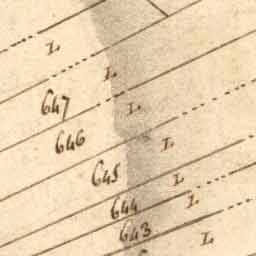 L
L
647
L
646
L
645
L
644
L
643
L